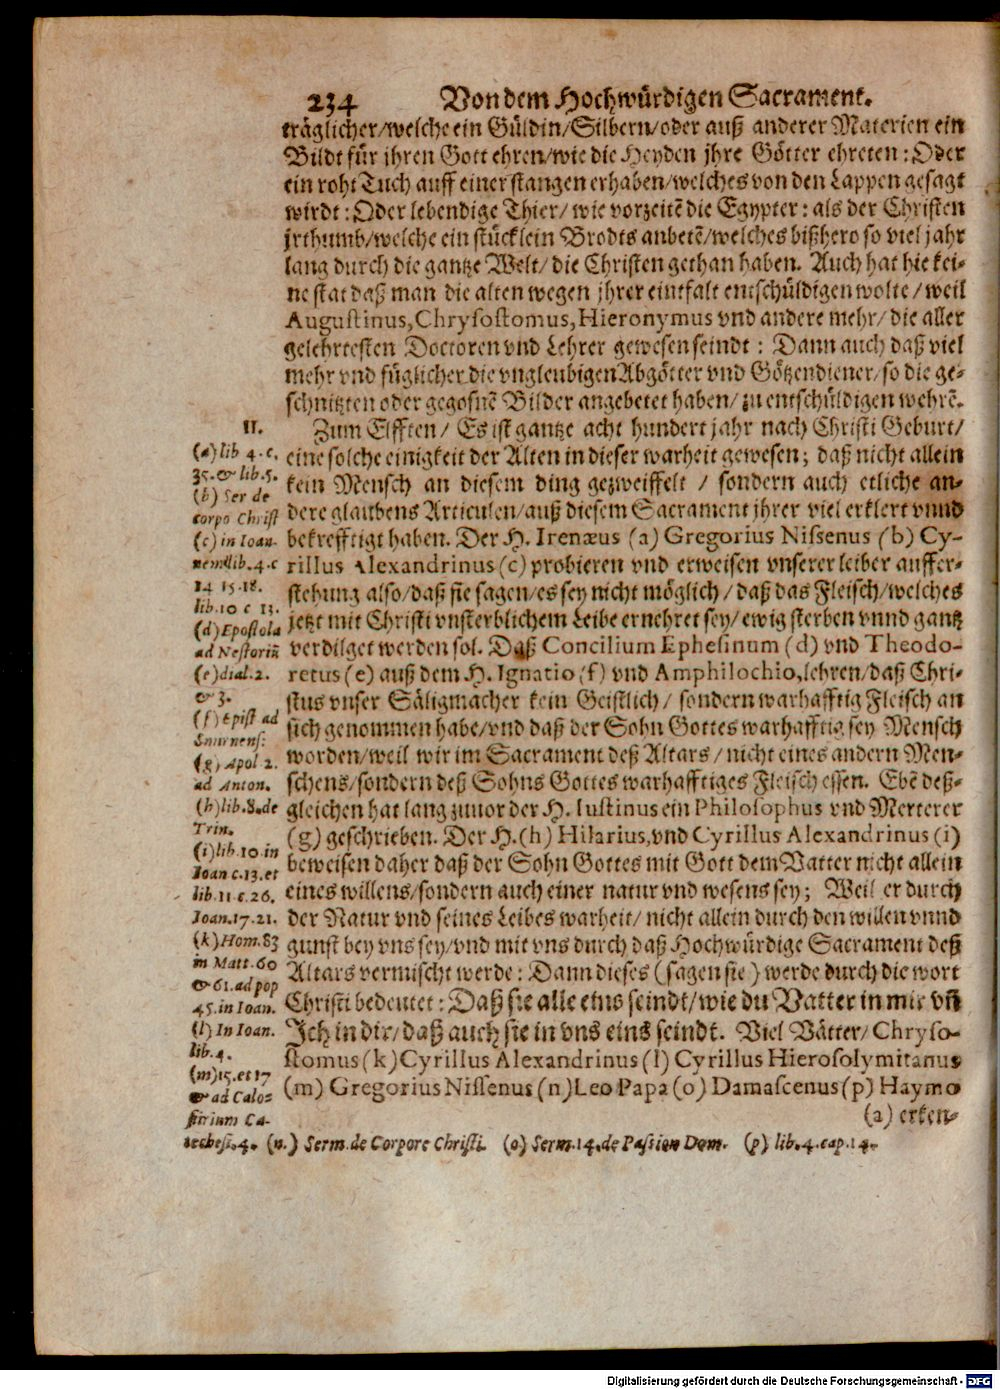 234 Von dem Hochwürdigen Sacrament.
träglicher/welche ein Güldin/Silbern/oder auß anderer Materien ein
Bildt für jhren Gott ehren/wie die Heyden jhre Götter ehreten: Oder
ein roht Tuch auff einer stangen erhaben/welches von den Lappen gesagt
wirdt: Oder lebendige Thier/ wie vorzeitē die Egypter: als der Christen
jrthumb/welche ein stücklein Brodts anbetē/welches bißhero so viel jahr
lang durch die gantze Welt/ die Christen gethan haben. Auch hat hie kei-
ne stat daß man die alten wegen jhrer eintfalt entschüldigen wolte/ weil
Augustinus, Chrysostomus, Hieronymus vnd andere mehr/ die aller
gelehrtesten Doctoren vnd Lehrer gewesen seindt: Dann auch daß viel
mehr vnd füglicher die vngleubigen Abgötter vnd Götzendiener/ so die ge-
schnitzten oder gegosnē Bilder angebetet haben/ zu entschüldigen wehrē.
Zum Elfften/ Es ist gantze acht hundert jahr nach Christi Geburt/
eine solche einigkeit der Alten in dieser warheit gewesen; daß nicht allein
kein Mensch an diesem ding gezweiffelt / sondern auch etliche an-
dere glaubens Articulen/auß diesem Sacrament jhrer viel erklert vnnd
bekrefftigt haben. Der H. Irenæus (a) Gregorius Nissenus (b) Cy-
rillus Alexandrinus (c) probieren vnd erweisen vnserer leiber auffer-
stehung also/daß sie sagen/es sey nicht möglich / daß das Fleisch/welches
jetzt mit Christi vnsterblichem Leibe ernehret sey/ ewig sterben vnnd gantz
verdilget werden sol. Daß Concilium Ephesinum (d) vnd Theodo-
retus (e) auß dem H. Ignatio (f) vnd Amphilochio, lehren/daß Chri-
stus vnser Säligmacher kein Geistlich/ sondern warhafftig Fleisch an
sich genommen habe/vnd daß der Sohn Gottes warhafftig sey Mensch
worden/weil wir im Sacrament deß Altars / nicht eines andern Men-
schens/sondern deß Sohns Gottes warhafftiges Fleisch essen. Ebē deß-
gleichen hat lang zuuor der H. Iustinus ein Philosophus vnd Merterer
(g) geschrieben. Der H. (h) Hilarius, vnd Cyrillus Alexandrinus (i)
beweisen daher daß der Sohn Gottes mit Gott dem Vatter nicht allein
eines willens/sondern auch einer natur vnd wesens sey; Weil er durch
der Natur vnd seines Leibes warheit/ nicht allein durch den willen vnnd
gunst bey vns sey/vnd mit vns durch daß Hochwürdige Sacrament deß
Altars vermischt werde: Dann dieses (sagen sie) werde durch die wort
Christi bedeutet: Daß sie alle eins seindt/wie du Vatter in mir vñ
Ich in dir/daß auch sie in vns eins seindt. Viel Vätter/ Chryso-
stomus (k) Cyrillus Alexandrinus (l) Cyrillus Hierosolymitanus
(m) Gregorius Nissenus (n) Leo Papa (o) Damascenus (p) Haymo
(a) erken-
II.
(a) lib 4. c.
35. & lib. 5.
(b) Ser de
corpo Christ
(c) in Ioan-
nem lib. 4. c
14 15. 18.
lib. 10 c 13.
(d) Epostola
ad Nestoriū
(e) dial. 2.
& 3.
(f) Epist ad
Smirnens:
(g) Apol 2.
ad Anton.
(h) lib. 8. de
Trin.
(i) lib. 10 in
Ioan c. 13. et
lib. 11 c. 26.
Ioan. 17. 21.
(k) Hom. 83
in Matt. 60
& 61. ad pop
45. in Ioan.
(l) In Ioan.
lib. 4.
(m) 15. et 17
& ad Calo-
sirium Ca-
techesi. 4. (n.) Serm. de Corpore Christi. (o) Serm. 14. de Passion Dom. (p) lib. 4. cap. 14.
Digitalisierung gefördert durch die Deutsche Forschungsgemeinschaft - DFG